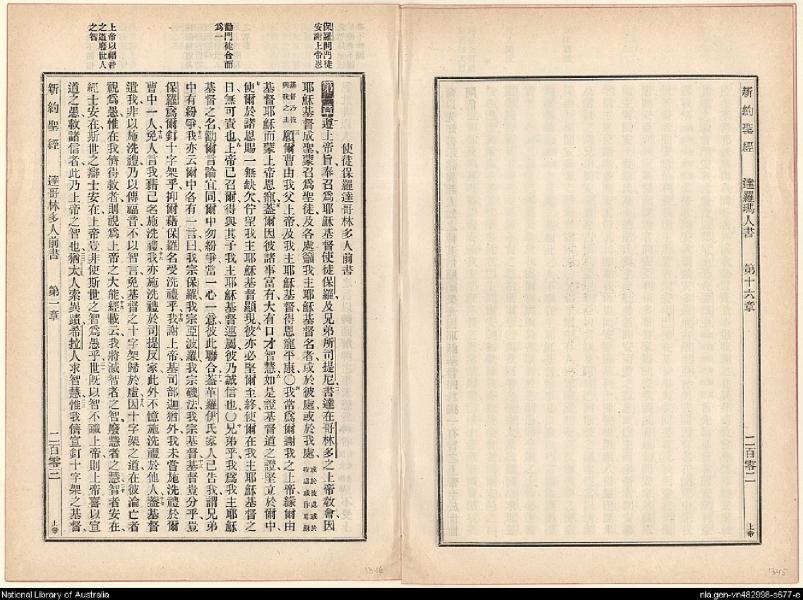 新約聖經 達羅瑪人書 第十六章 二百零二 上帝
保羅問門徒
安謝上帝恩
勸門徒合而
為一
上帝以福音
之道廢世人
之智
使徒保羅達哥林多人前書
第一章遵上帝旨奉召為耶穌基督使徒保羅及兄弟所司提尼書達在哥林多之上帝教會因
耶穌基督成聖蒙召為聖徒及各處籲我主耶穌基督名者或於彼處或於我處
願爾曹由我父上帝及我主耶穌基督得恩寵平康○我常為爾謝我之上帝緣爾由
基督耶穌而蒙上帝恩寵蓋爾因彼諸事富有大有口才智慧如是證基督道之證堅立於爾中
使爾於諸恩賜一無缺欠佇望我主耶穌基督顯現彼亦必堅爾至終使爾在我主耶穌基督之
日無可責也上帝已召爾得與其子我主耶穌基督同屬彼乃誠信也○兄弟乎我為我主耶穌
基督之名勸爾言論宜同爾中勿紛爭當一心一意彼此聯合蓋革羅伊氏家人已告我謂兄弟
中有紛爭我亦云爾中各有一言曰我宗保羅我宗亞波羅我宗磯法我宗基督基督豈分乎豈
保羅為爾釘十字架乎抑爾藉保羅名受洗禮乎我謝上帝基司部迦猶外我未嘗施洗禮於爾
曹中一人免人言我藉己名施洗禮我亦施洗禮於司提反家此外不憶施洗禮於他人蓋基督
遣我非以施洗禮乃以傳福音不以智言免基督之十字架歸於虛因十字架之道在彼淪亡者
視為愚惟在我儕得救者則視為上帝之大能經載云我將滅智者之智廢慧者之慧智者安在
經士安在斯世之辯士安在上帝豈非使斯世之智為愚乎世既以智不識上帝則上帝喜以宣
道之愚救諸信者此乃上帝之智也猶太人索異蹟希拉人求智慧惟我儕宣釘十字架之基督
新約聖經 達哥林多人前書 第一章 二百零三 上帝
National Library of Australia
nla.gen-vn482998-s677-e